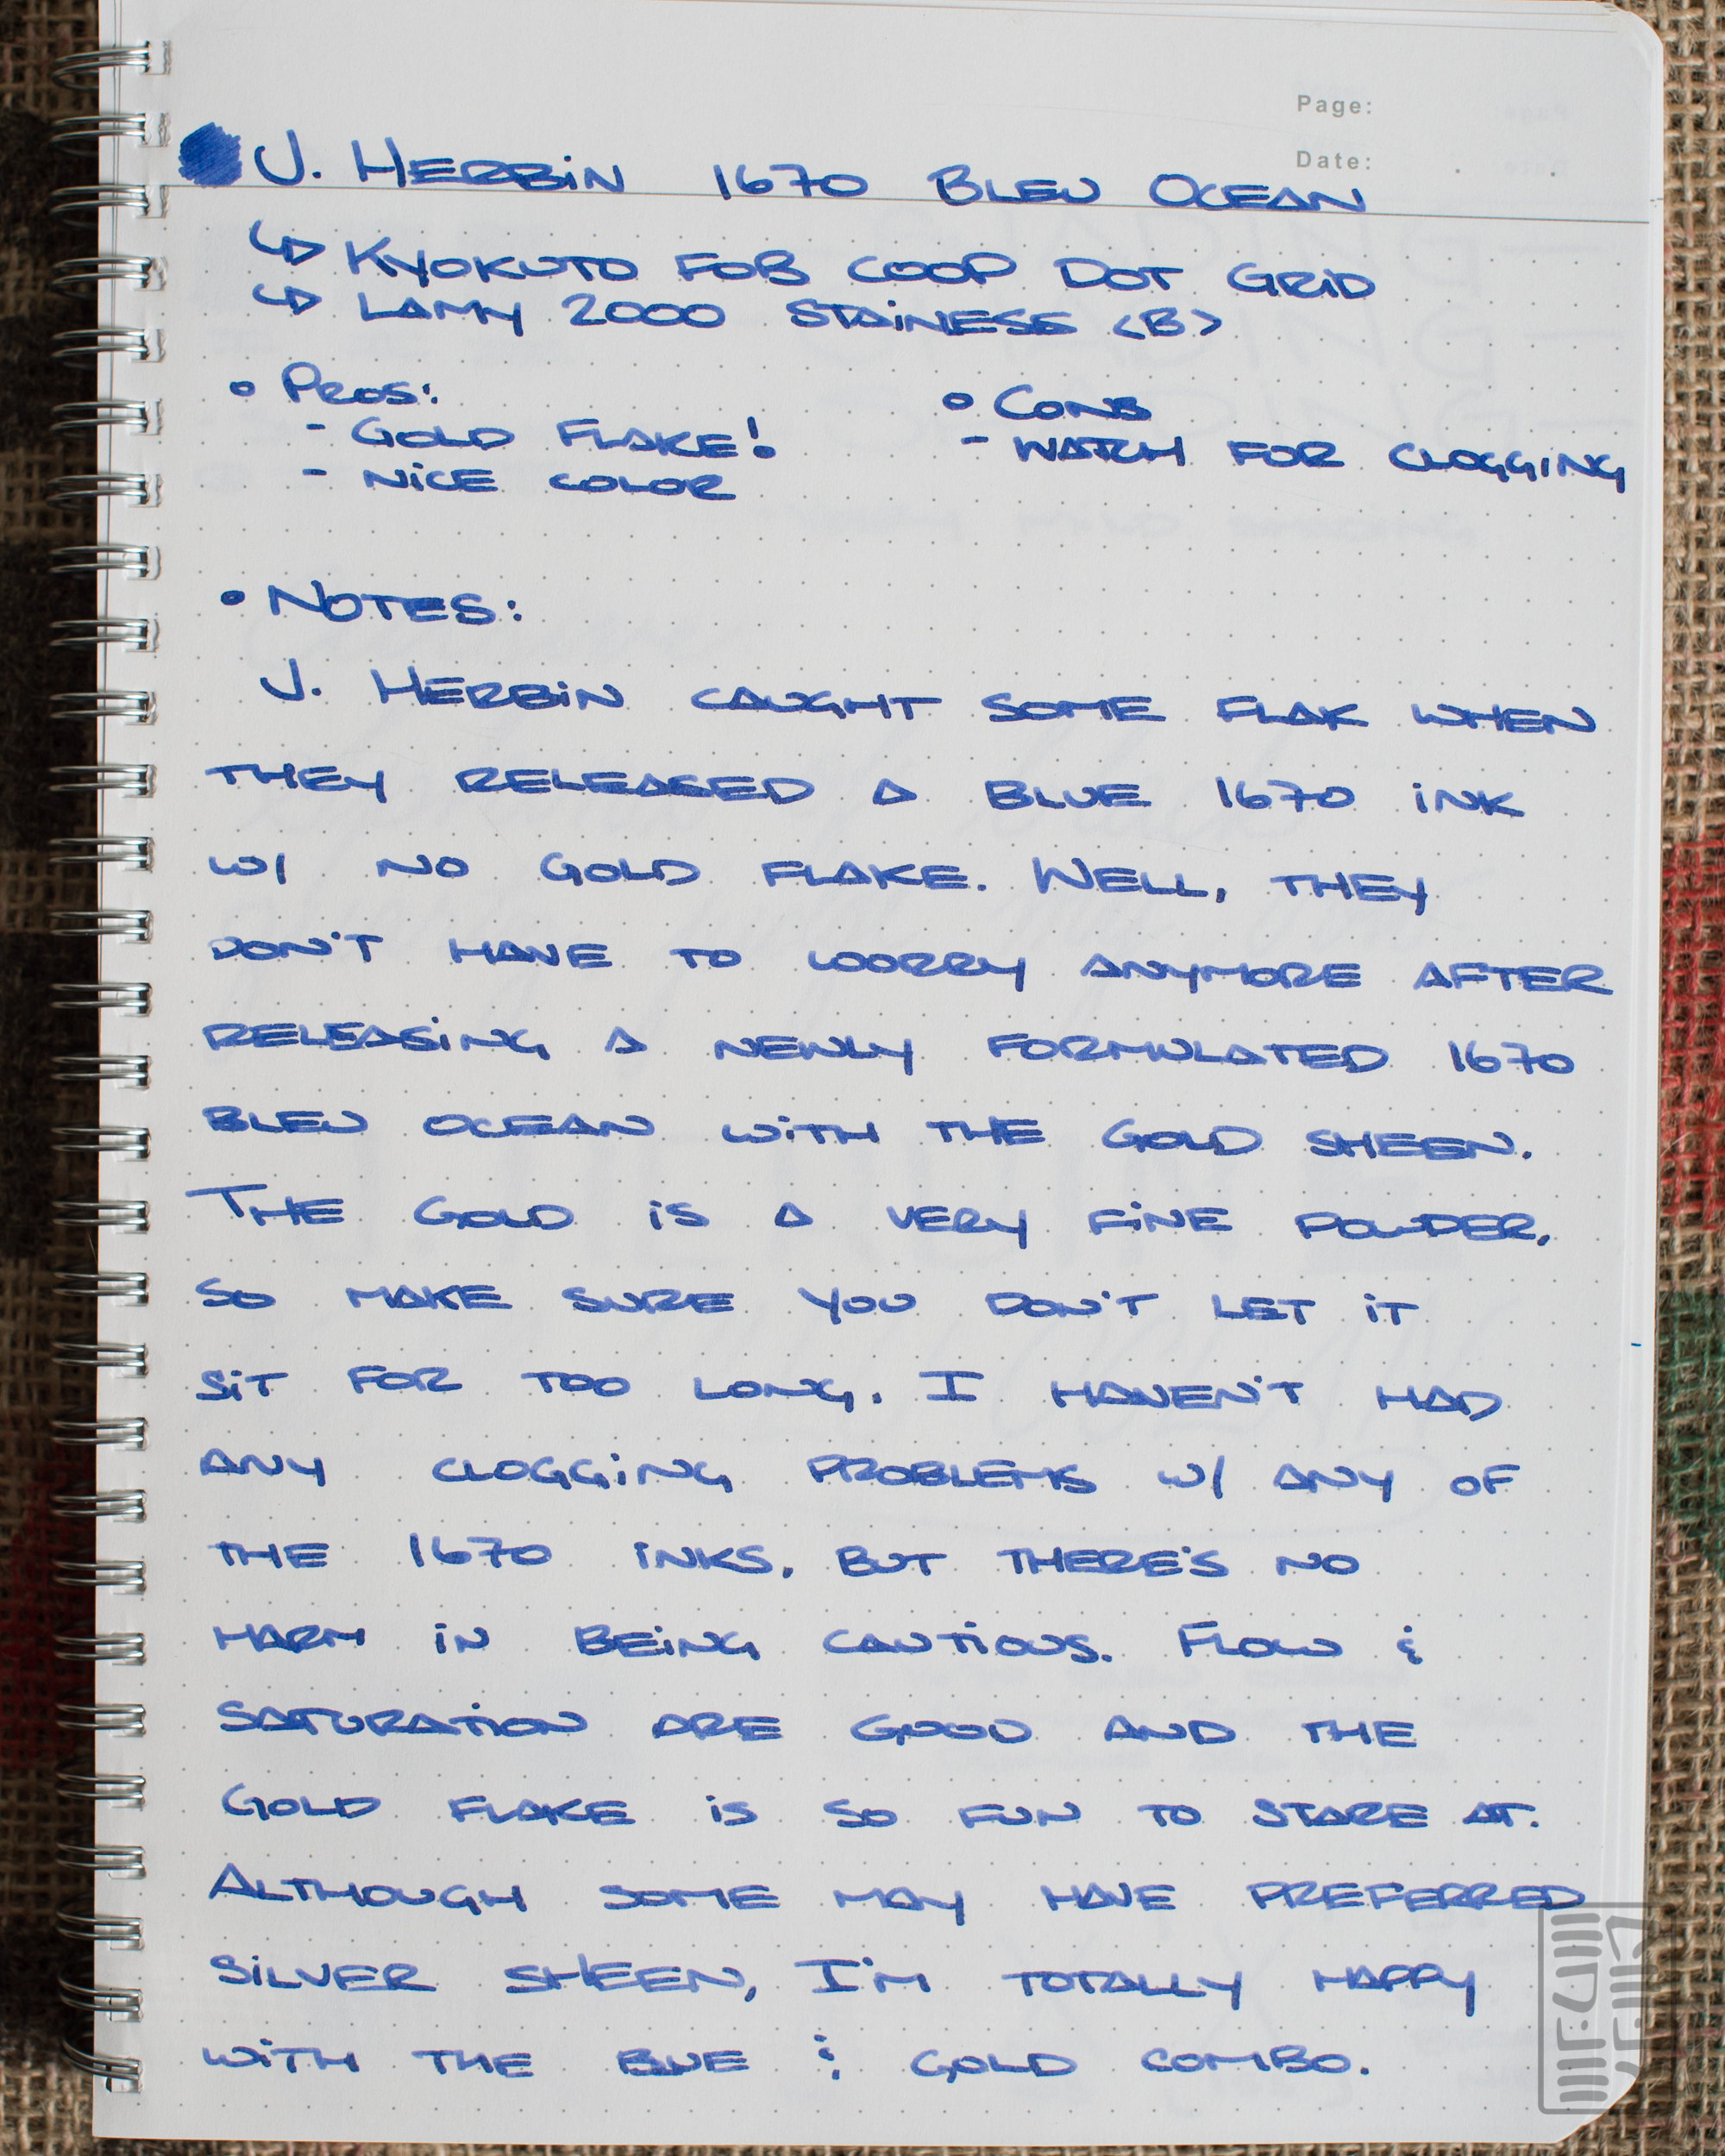 Page:
Date:
J. HERBIN 1670 BLEU OCEAN
↳ KYOKUTO FOB COOP DOT GRID
↳ LAMY 2000 STAINESS <B>
• PROS:
- GOLD FLAKE!
- NICE COLOR
• CONS
- WATCH FOR CLOGGING
• NOTES:
J. HERBIN CAUGHT SOME FLAK WHEN
THEY RELEASED A BLUE 1670 INK
W/ NO GOLD FLAKE. WELL, THEY
DON'T HAVE TO WORRY ANYMORE AFTER
RELEASING A NEWLY FORMULATED 1670
BLEU OCEAN WITH THE GOLD SHEEN.
THE GOLD IS A VERY FINE POWDER,
SO MAKE SURE YOU DON'T LET IT
SIT FOR TOO LONG. I HAVEN'T HAD
ANY CLOGGING PROBLEMS W/ ANY OF
THE 1670 INKS, BUT THERE'S NO
HARM IN BEING CAUTIOUS. FLOW &
SATURATION ARE GOOD AND THE
GOLD FLAKE IS SO FUN TO STARE AT.
ALTHOUGH SOME MAY HAVE PREFERRED
SILVER SHEEN, I'M TOTALLY HAPPY
WITH THE BLUE & GOLD COMBO.